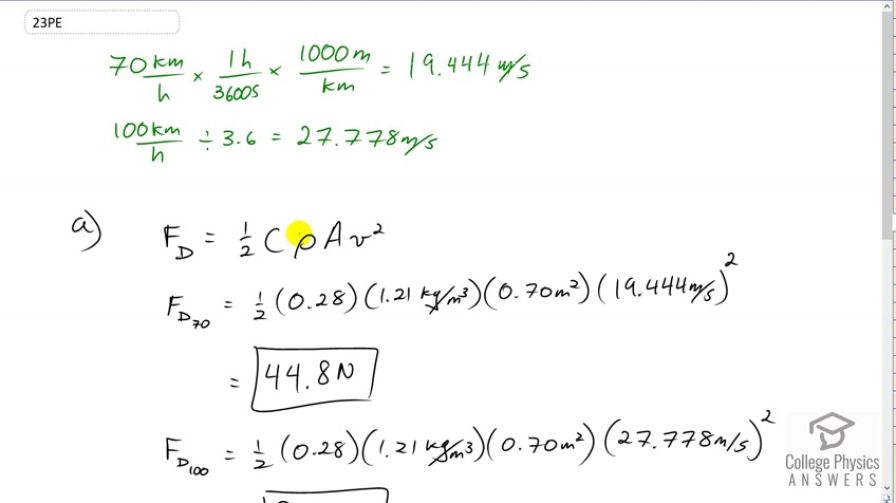 23PE
70 km/h × 1h/3600s × 1000m/km = 19.444 m/s
100km/h ÷ 3.6 = 27.778 m/s
a) F_D = 1/2 C ρ A v²
F_D70 = 1/2 (0.28)(1.21 kg/m³)(0.70m²)(19.444m/s)²
= 44.8N
F_D100 = 1/2 (0.28)(1.21 kg/m³)(0.70m²)(27.778m/s)²
College Physics
ANSWERS